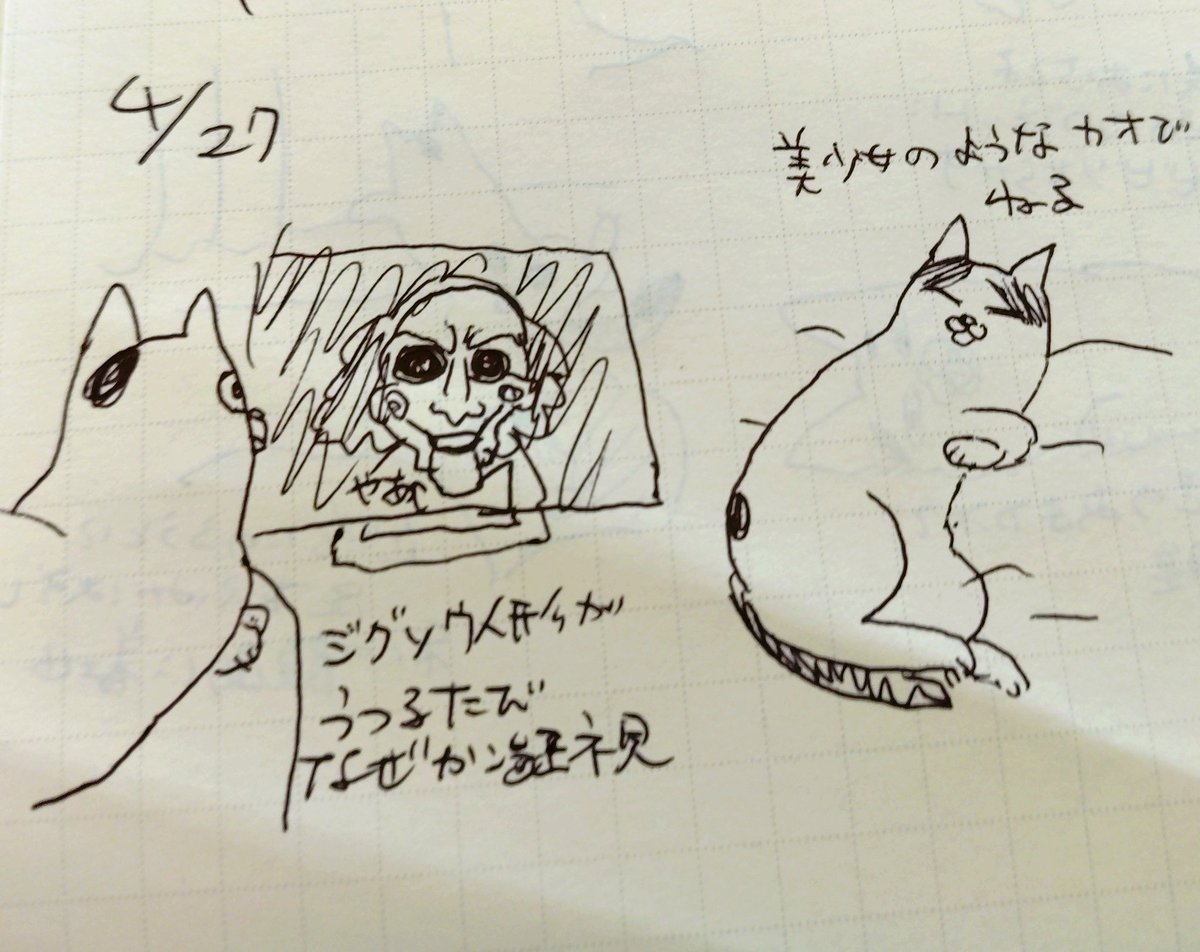 4/27
やあ
ジグソウ人形が
うつるたび
なぜか凝視
美少女のようなカオで
ねる